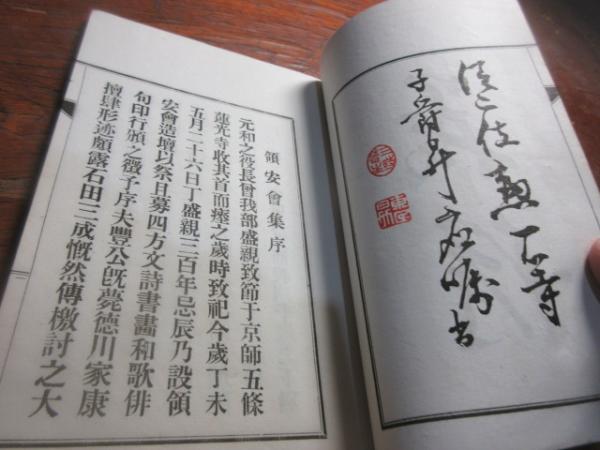 從二位勲一等
子爵
領安會集序
元和之役長曾我部盛親致節于京師五條
蓮光寺收其首而瘞之歲時致祀今歲丁未
五月二十六日丁盛親三百年忌辰乃設領
安會造壇以祭日募四方文詩書畫和歌俳
句印行頒之徵予序夫豐公既薨德川家康
擅肆形迹頗露石田三成慨然傳檄討之大